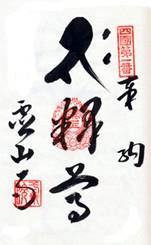 四國第一番
奉納
釋尊
霊山寺